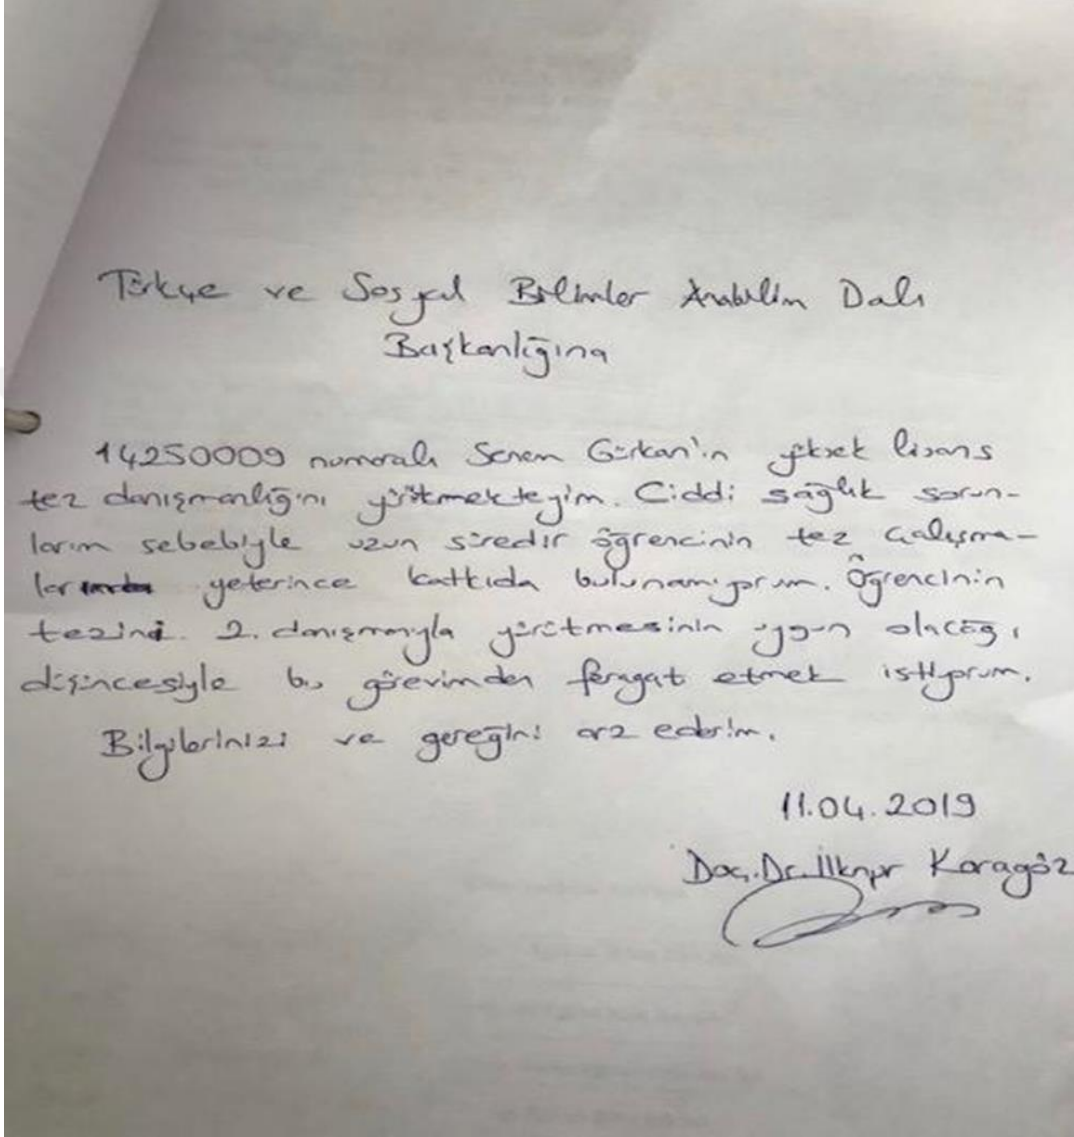 Türkçe ve Sosyal Bilimler Anabilim Dalı
Başkanlığına
14250009 numaralı Senem Gürkan'ın yüksek lisans
tez danışmanlığını yürütmekteyim. Ciddi sağlık sorun-
larım sebebiyle uzun süredir öğrencinin tez çalışma-
lar yeterince katkıda bulunamıyorum. Öğrencinin
tezini 2. danışmanıyla yürütmesinin uygun olacağı
düşüncesiyle bu görevimden feragat etmek istiyorum.
Bilgilerinizi ve gereğini arz ederim.
11.04.2019
Doç. Dr. İlknur Karagöz